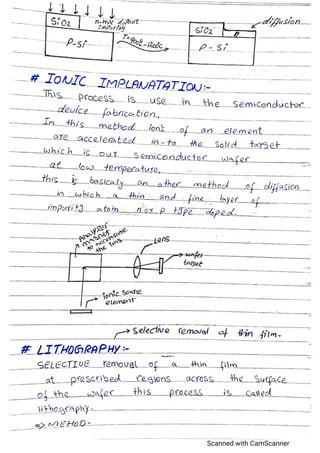 SiO2
n-type dopant
impurity
P-Si
T=900c-1200c
diffusion
SiO2
n
P - Si
# IONIC IMPLANATATION:-
This process is use in the semiconductor
device fabrication.
In this method ion's of an element
are accelerated in-to the solid target
which is our semiconductor wafer
at low temperature,
this is basicaly an other method of diffusion
in which a thin and fine layer of
impurity atom n or p type doped.
Analyzer
magnet
to accelerate
the ions
Lens
wafer
target
ionic source
element
selective removal of thin film.
# LITHOGRAPHY:-
SELECTIVE removal of a thin film
at prescribed regions across the surface
of the wafer this process is called
lithography.
=> METHOD-
Scanned with CamScanner